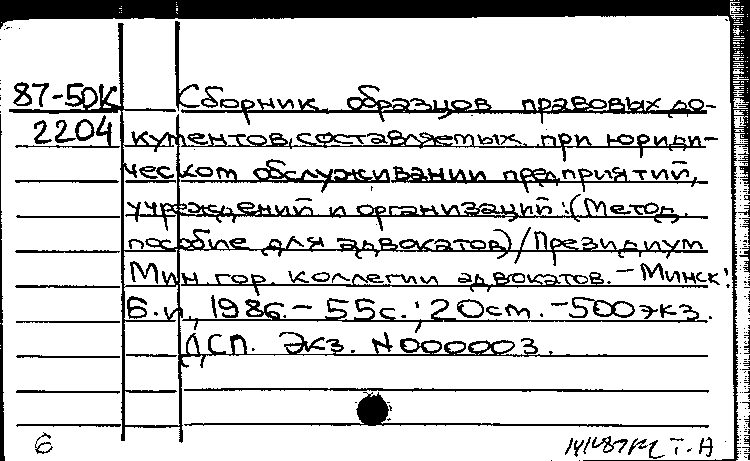 87-50К Сборник образцов правовых до-
2204 кументов, составляемых при юриди-
ческом обслуживании предприятий,
учреждений и организаций: (Метод.
пособие для адвокатов) / Президиум
Мин. гор. коллегии адвокатов. - Минск:
Б.и., 1986. - 55с.; 20см. - 500экз.
ДСП. Экз. N000003.
6 Т.А